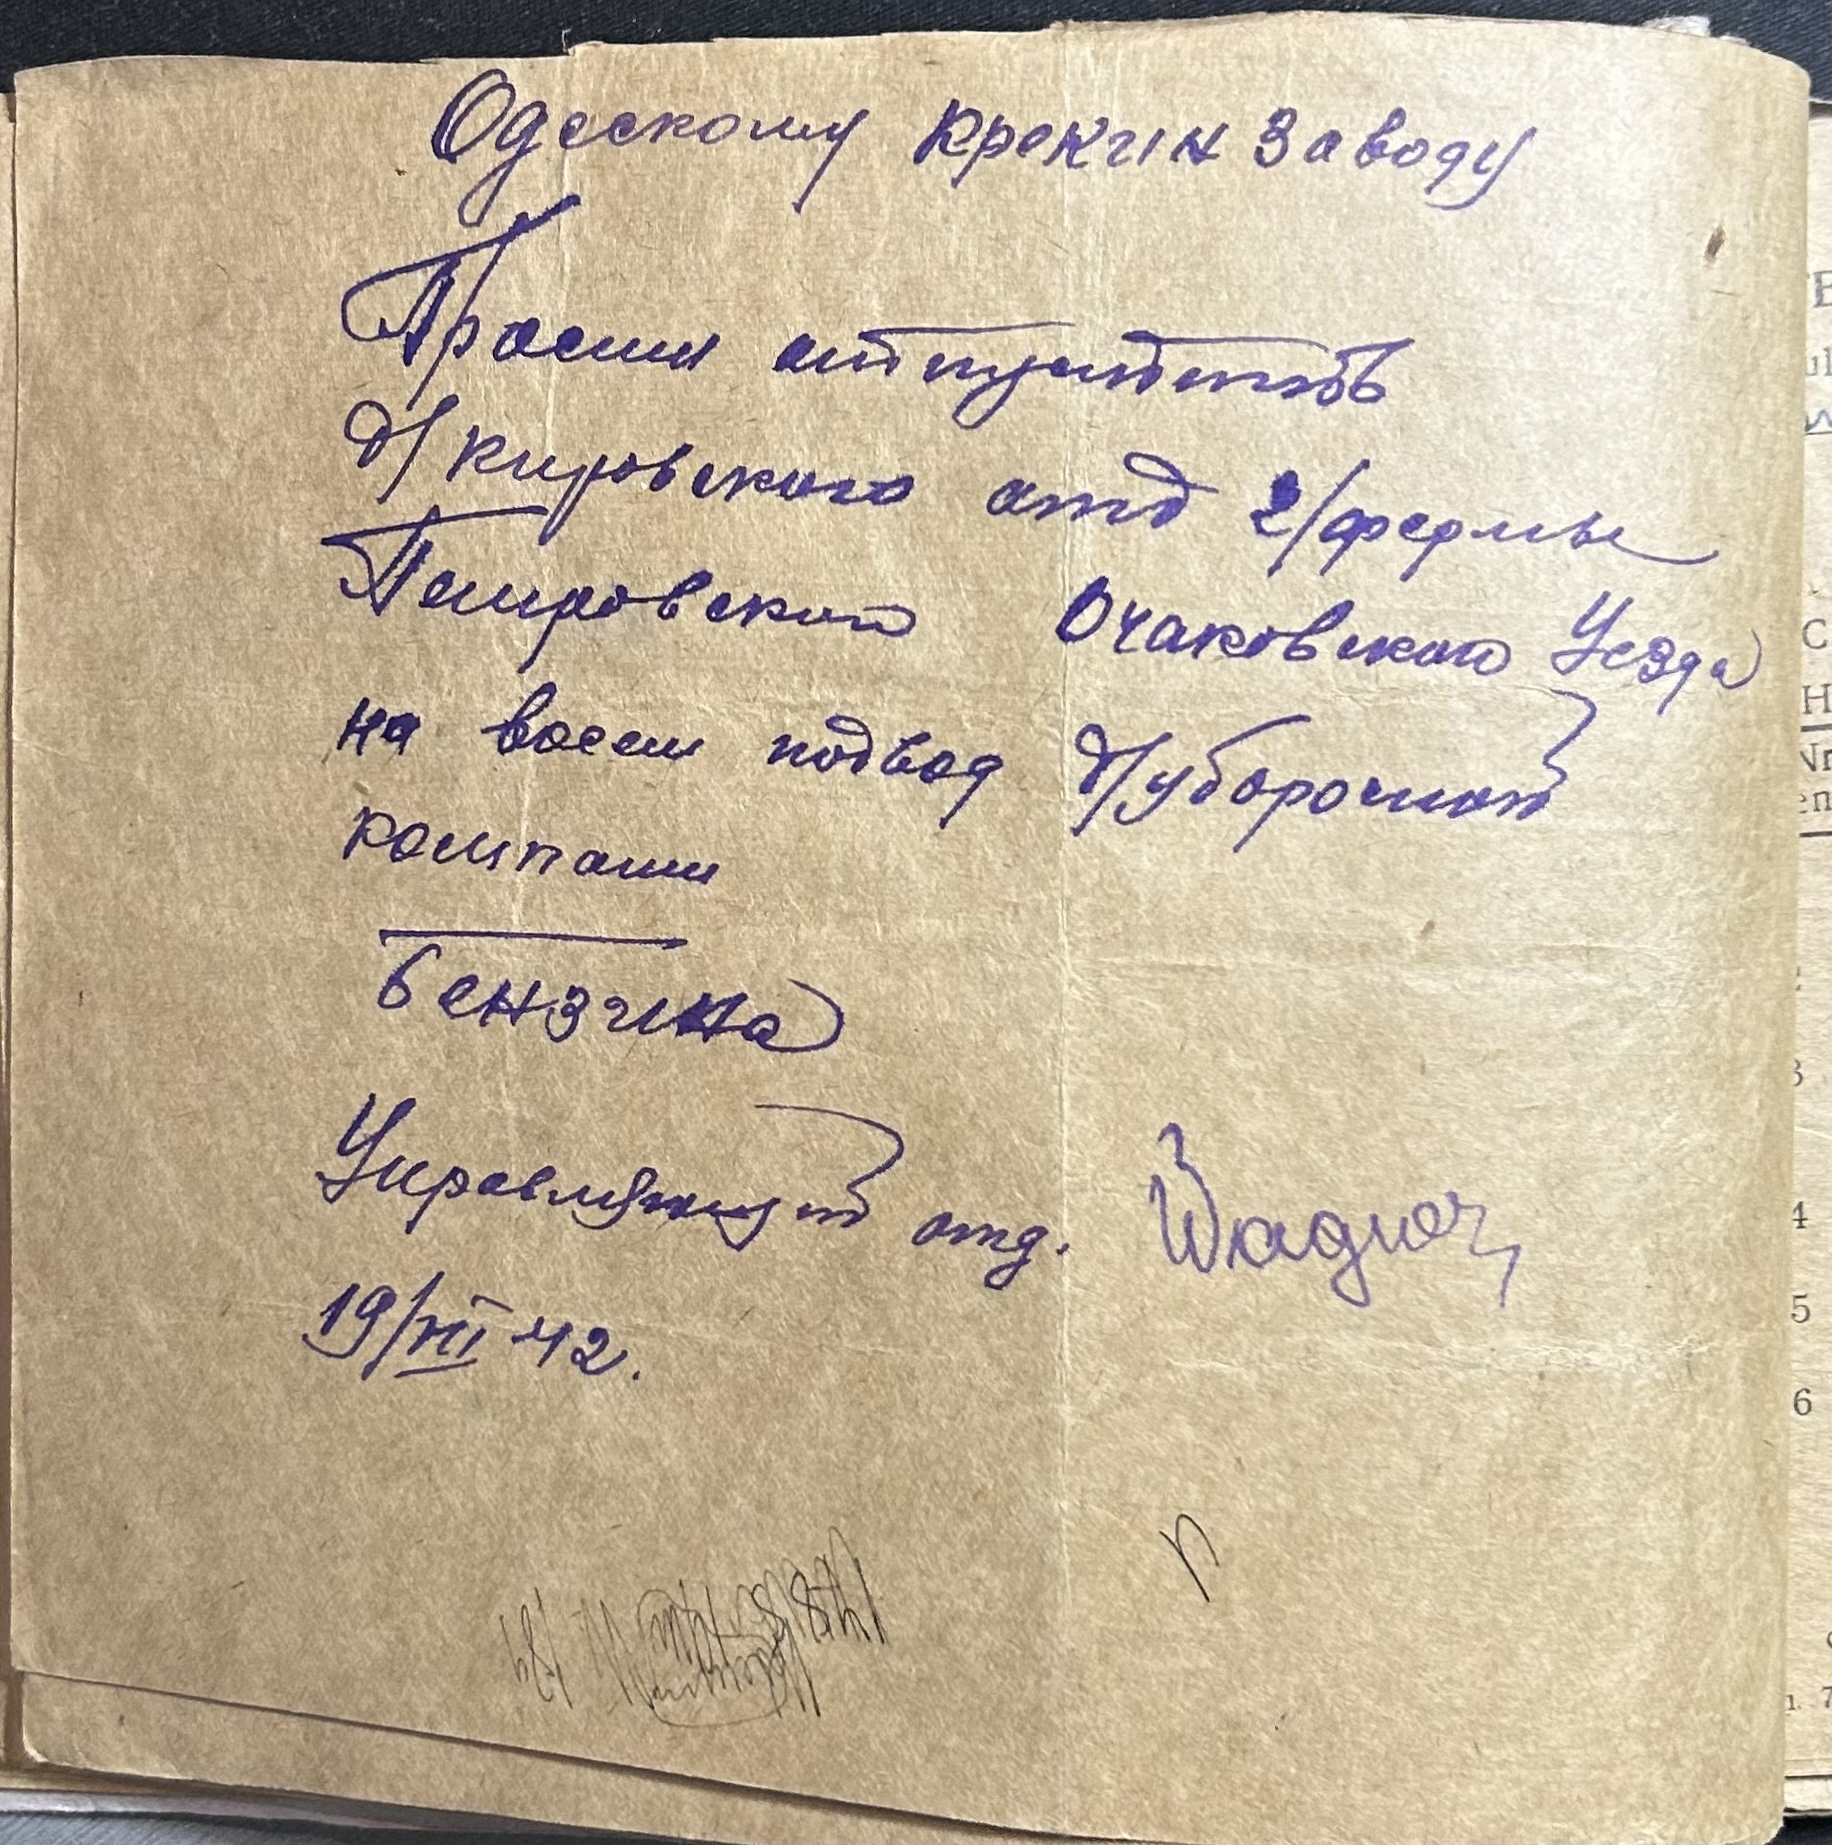 Одескому Крекин Заводу
Просим отпустить
д/Кировского отд г/фермы
Очаковского Уезда
на восем подвод д/уборочной
компании
бензина
Управляющий отд. Wagner
19/VII 42.